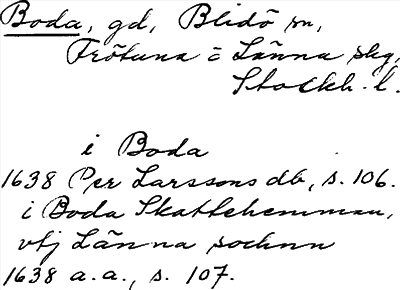 Boda, gd, Blidö sn,
Frötuna o Länna skg,
Stockh. l.
i Boda
1638 Per Larssons db, s. 106.
i Boda Skattehemman,
vtj Länna sochnn
1638 a.a., s. 107.